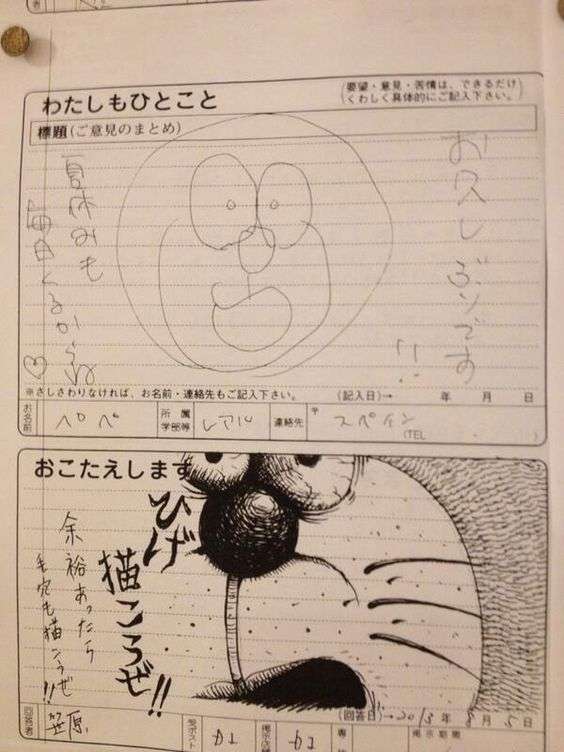 わたしもひとこと
(要望・意見・苦情は、できるだけ
くわしく具体的にご記入下さい。)
標題(ご意見のまとめ)
お久しぶりです
!!
夏休みも
毎日くるからね♡
※さしさわりなければ、お名前・連絡先もご記入下さい。
(記入日)→ 年 月 日
お名前
ペペ
所属
学部等
レアル
連絡先
〒
スペイン
(TEL )
おこたえします
ひげ
描こうぜ!!
余裕あったら
毛穴も描こうぜ!!
回答者
笠原
(回答日)→2013年8月5日
掲示期間